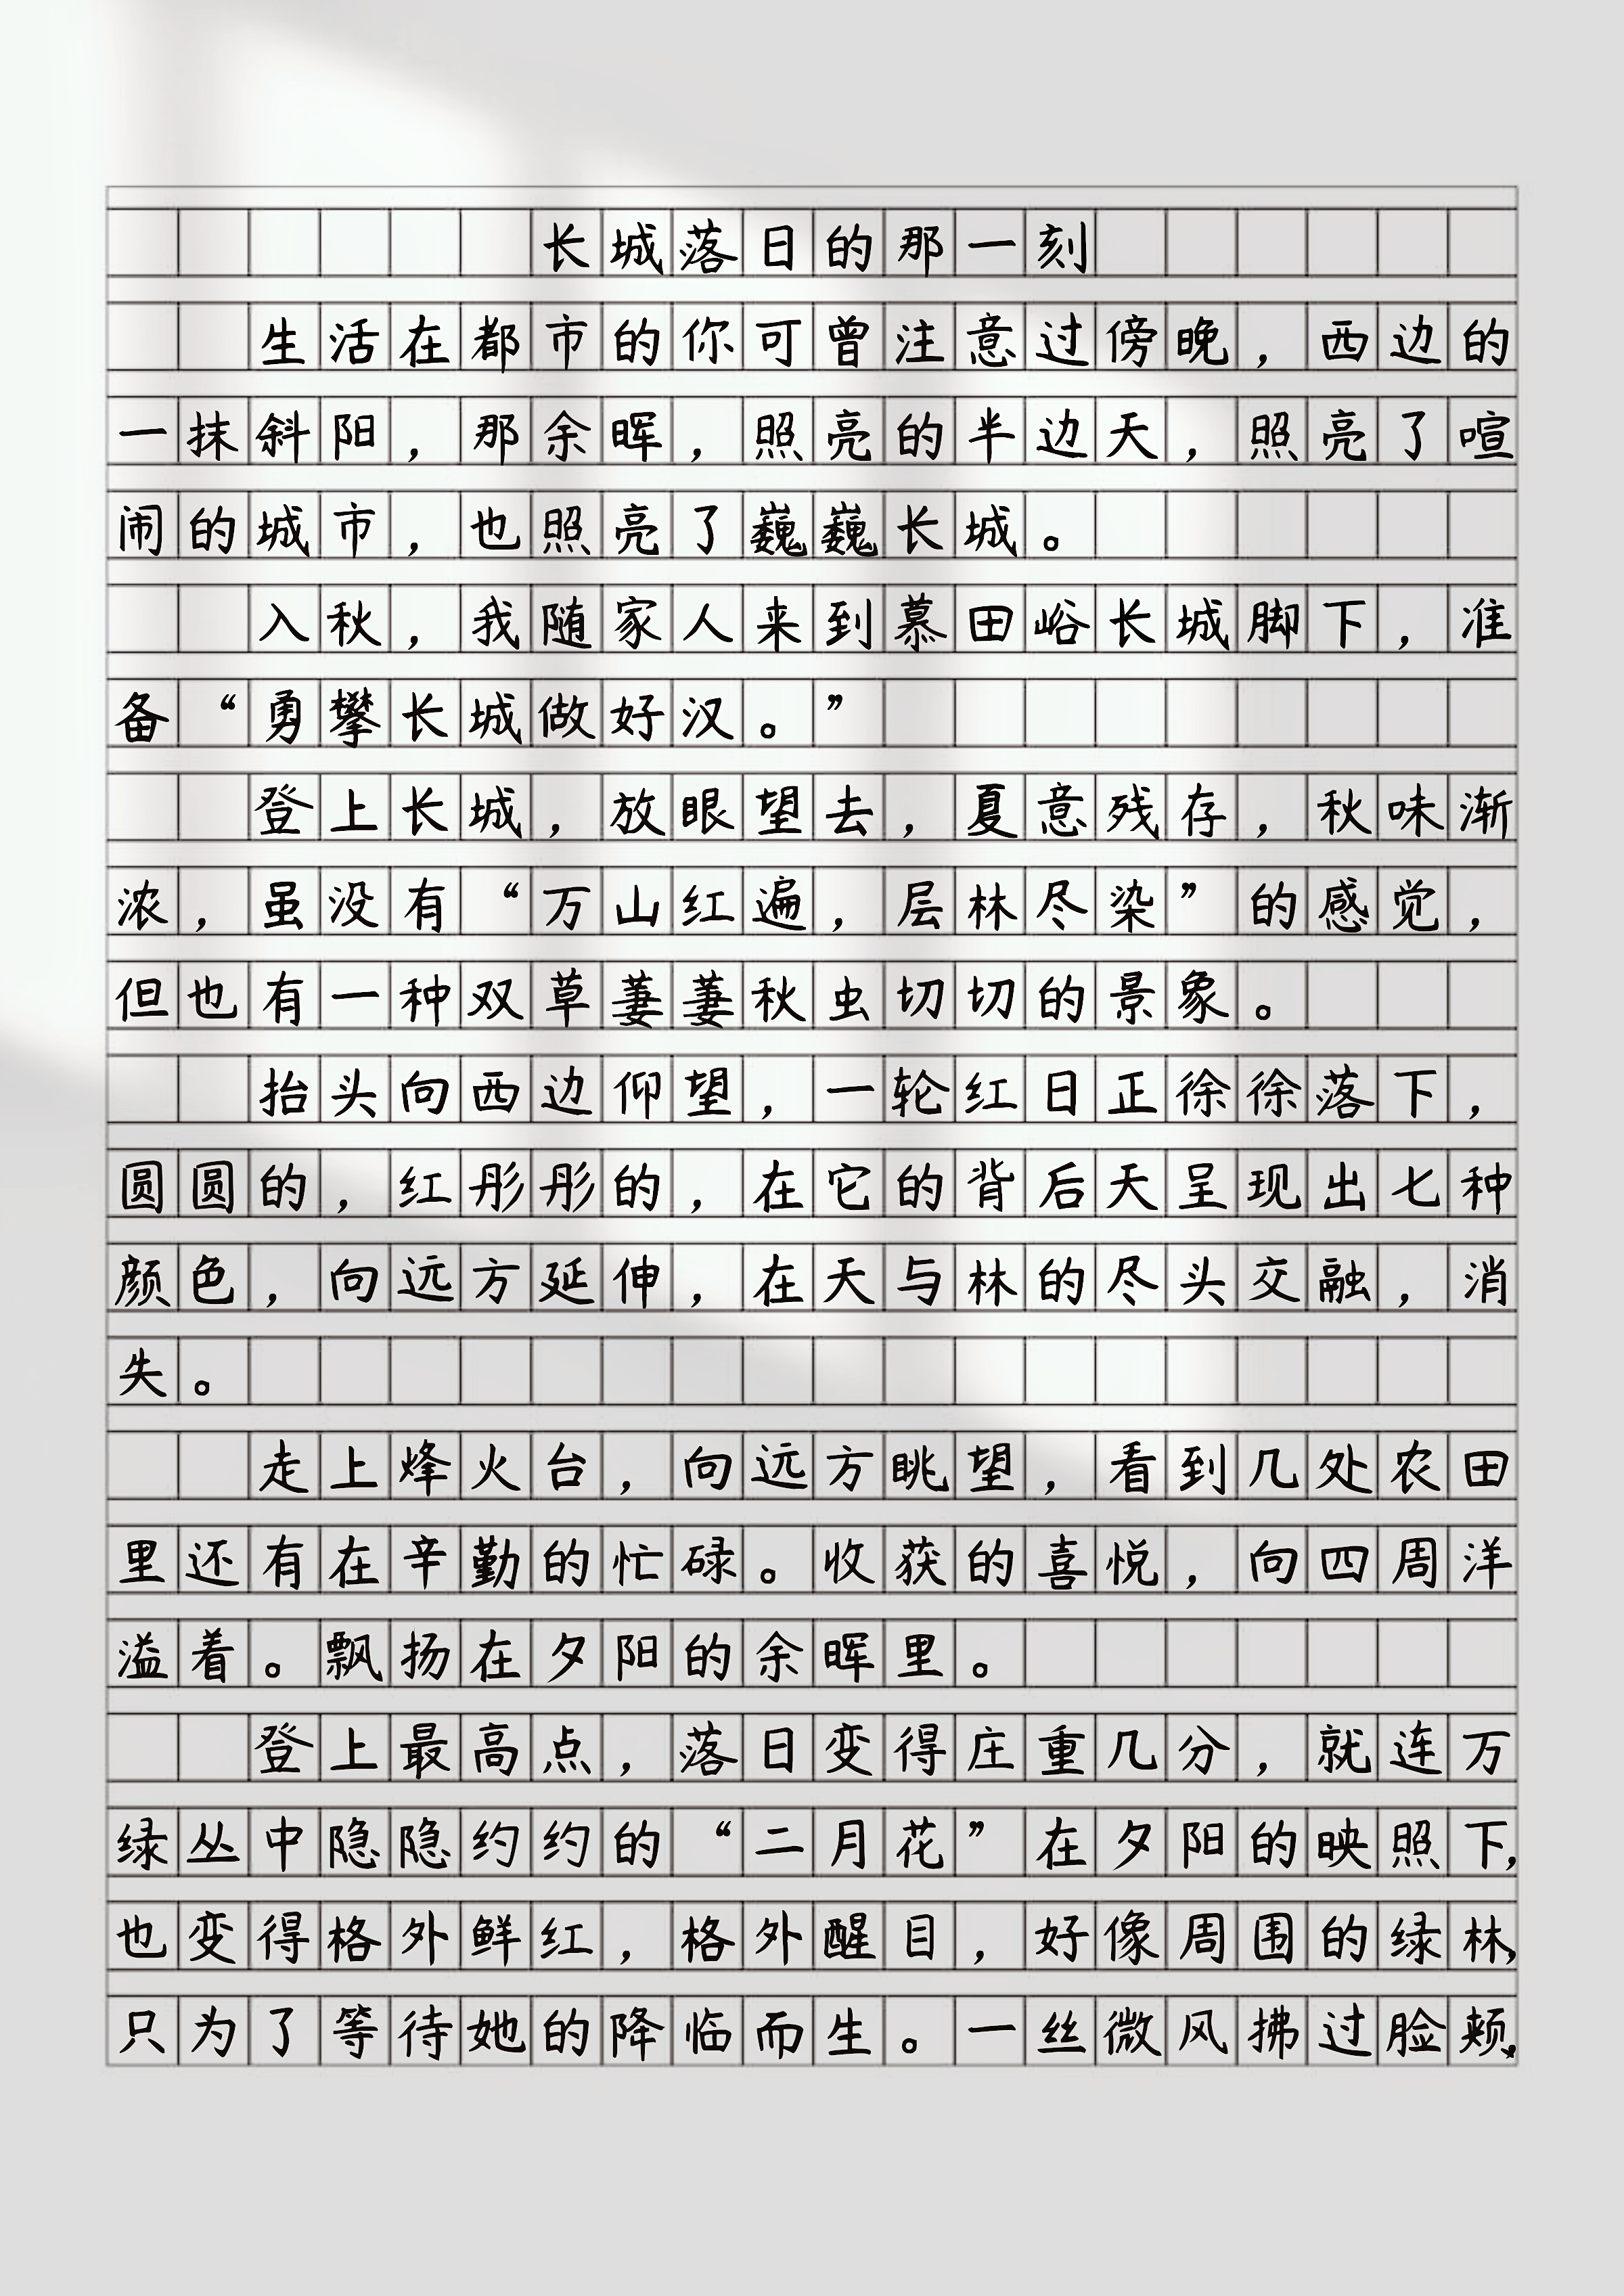 长城落日的那一刻
生活在都市的你可曾注意过傍晚，西边的
一抹斜阳，那余晖，照亮的半边天，照亮了喧
闹的城市，也照亮了巍巍长城。
入秋，我随家人来到慕田峪长城脚下，准
备“勇攀长城做好汉。”
登上长城，放眼望去，夏意残存，秋味渐
浓，虽没有“万山红遍，层林尽染”的感觉，
但也有一种双草萋萋秋虫切切的景象。
抬头向西边仰望，一轮红日正徐徐落下，
圆圆的，红彤彤的，在它的背后天呈现出七种
颜色，向远方延伸，在天与林的尽头交融，消
失。
走上烽火台，向远方眺望，看到几处农田
里还有在辛勤的忙碌。收获的喜悦，向四周洋
溢着。飘扬在夕阳的余晖里。
登上最高点，落日变得庄重几分，就连万
绿丛中隐隐约约的“二月花”在夕阳的映照下，
也变得格外鲜红，格外醒目，好像周围的绿林，
只为了等待她的降临而生。一丝微风拂过脸颊，